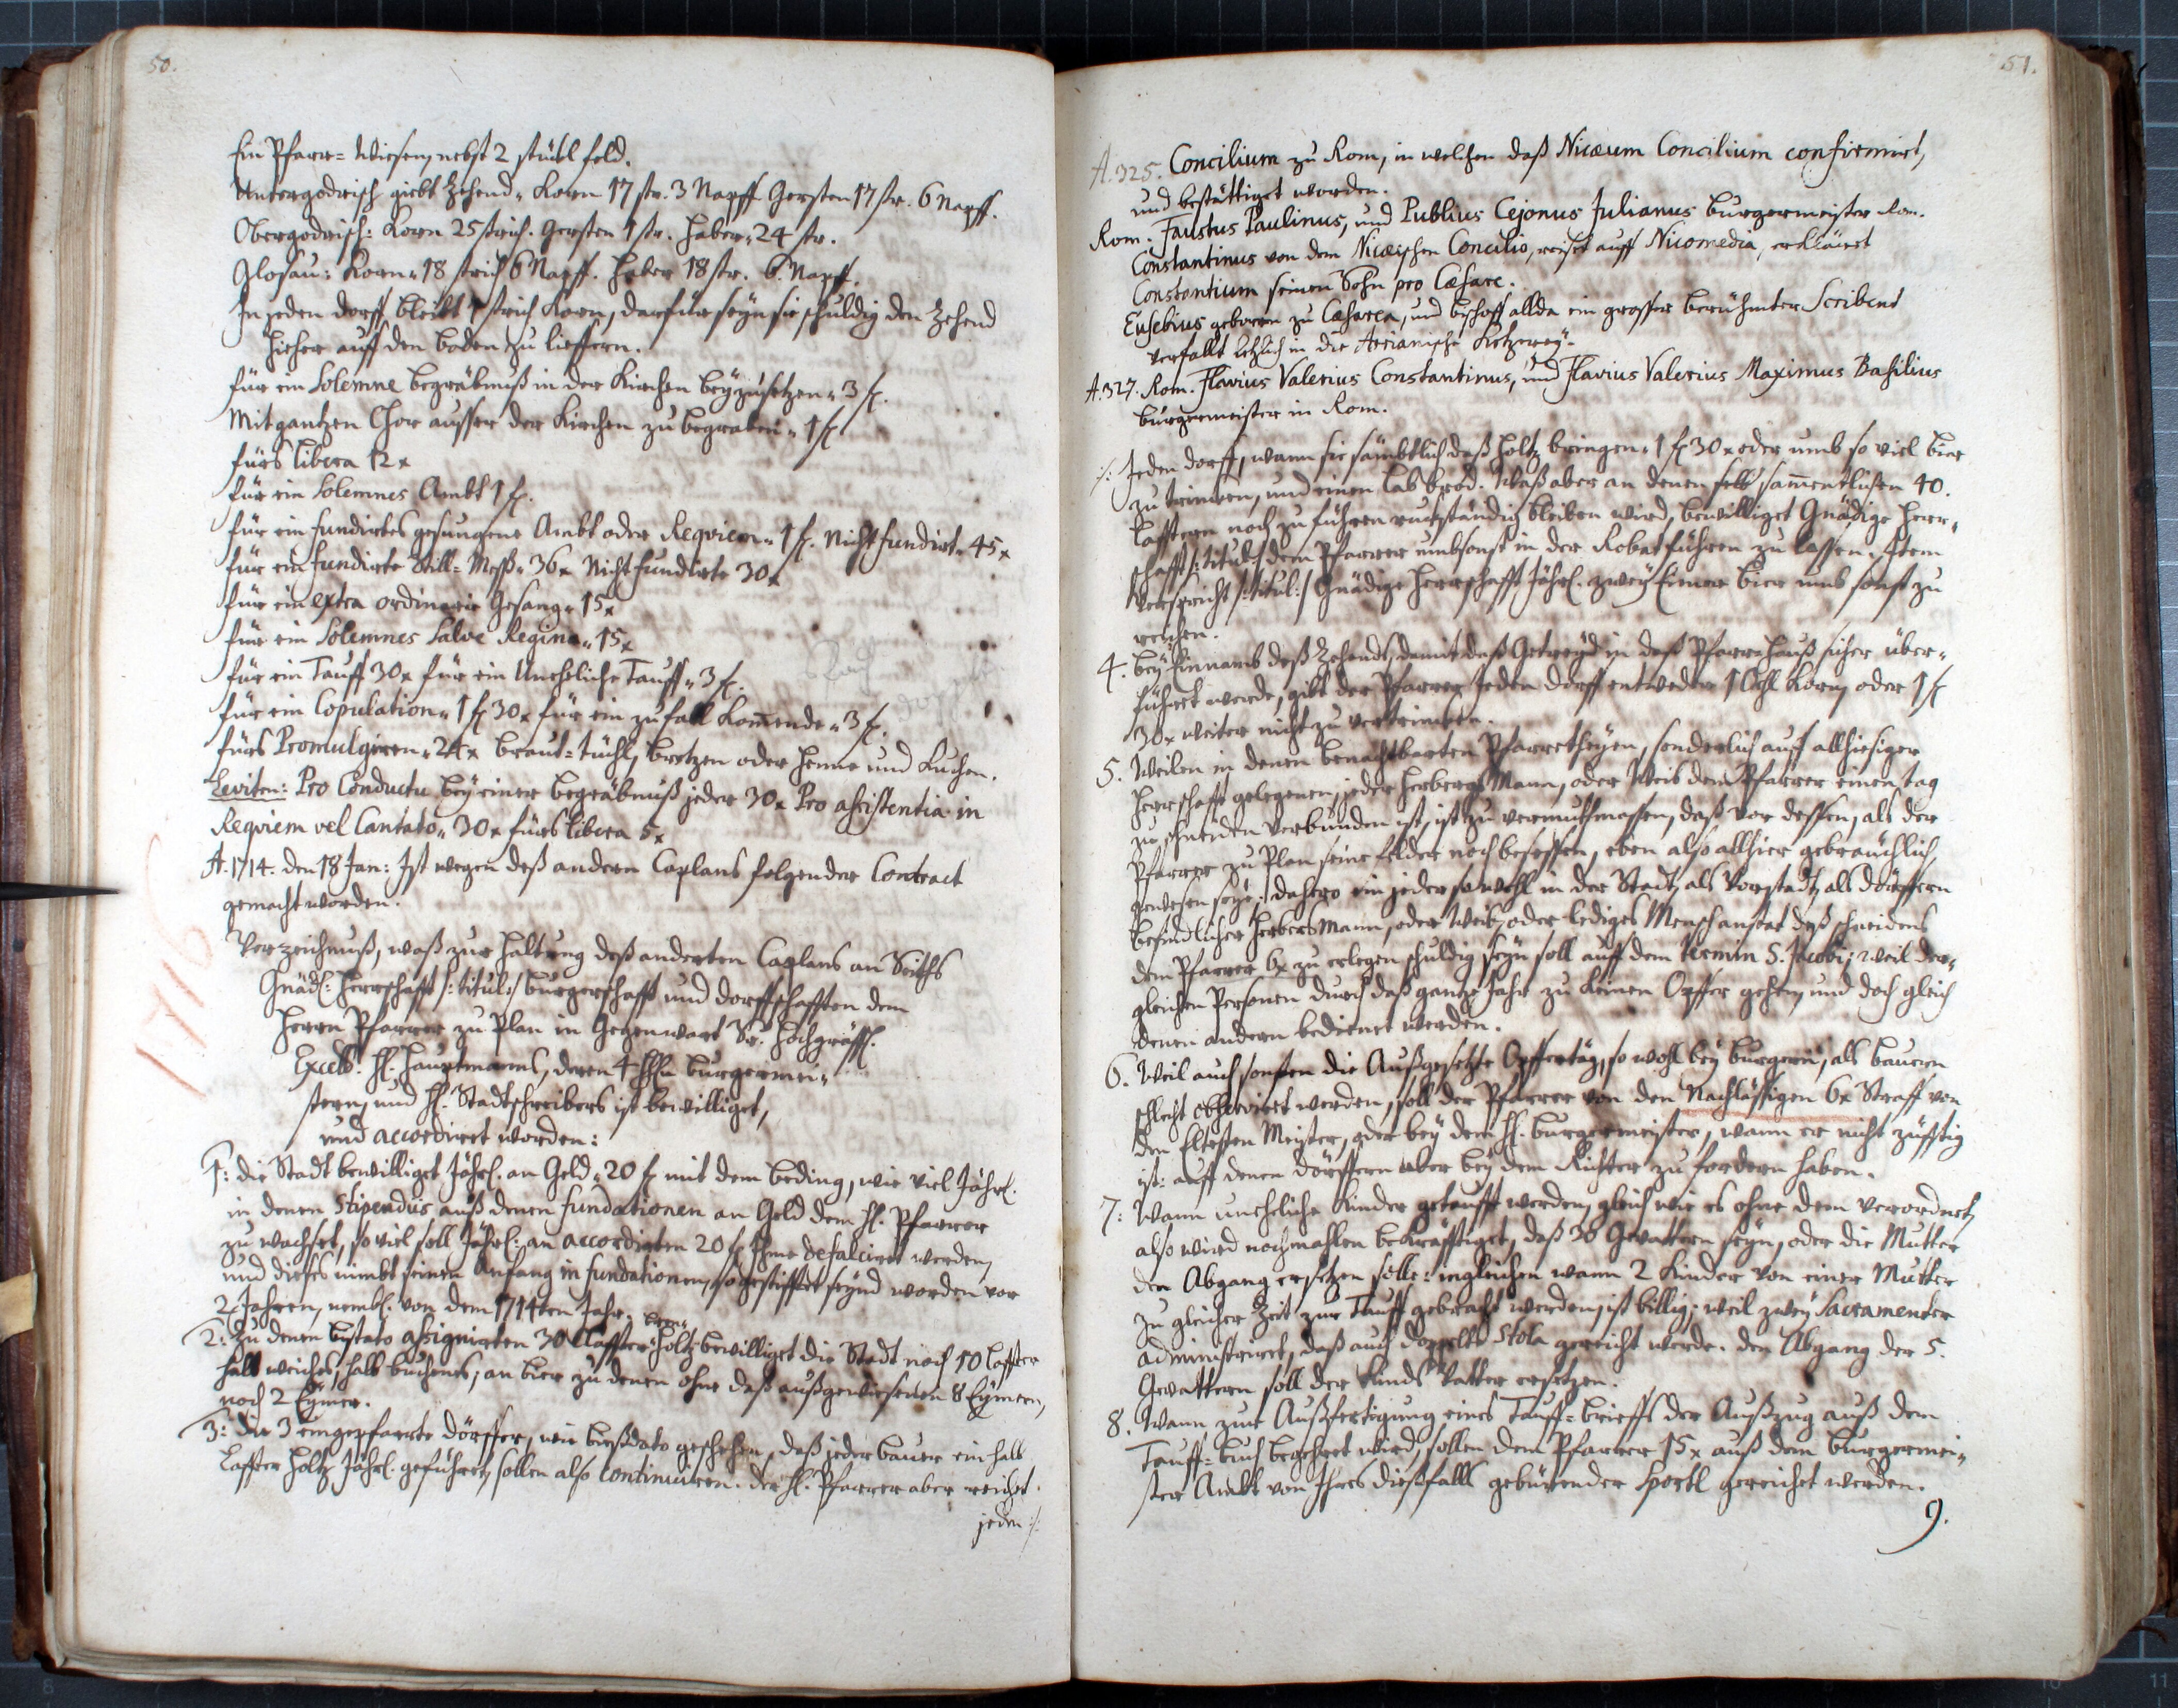 50.
Ein Pfarr= Wiesen, nebst 2 stückl feld.
Untergodrisch giebt Zehend„ Korn 17 str. 3 Napff Gersten 17 str. 6 Napff.
Obergodrisch: Korn 25 strich. Gersten 1 str. Haber„ 24 str.
Glosau: Korn„ 18 strich 6 Napff. Haber 18 str. 6. Napff.
In jeden dorff bleibt 1 strich Korn, darfür seyn sie schuldig den Zehend
hieher auf den boden zu lieffern.
für ein Solemne begräbnuß in der Kirchen beyzusetzen„ 3 f.
Mit gantzen Chor ausser der Kirchen zu begraben„ 1 f
fürs libera 12 x
für ein Solemnes Ambt 1 f.
für ein fundirtes gesungene Ambt oder Reqviem„ 1 f. Nicht fundirt„ 45 x
für ein fundirte Still= Meß„ 36 x Nicht fundirte 30 x
für ein extra ordinarie Gesang„ 15 x
für ein Solemnes Salve Regina„ 15 x
für ein Tauff 30 x für ein Unehliche Tauff„ 3 f.
für ein Copulation„ 1 f 30 x für ein zu fall Kom̅ende„ 3 f.
fürs Promulgiren„ 24 x braut= tüchl, bretzen oder Henne und Kuchen.
Leviten: Pro Conductu bey einer begräbnuß jeder 30 x Pro assistentia in
Reqviem vel Cantato„ 30 x fürs libera 5 x
A. 1714. den 18 Jan: Ist wegen deß andern Caplans folgender Contract
gemacht worden.
1716
Verzeichnuß, waß zur haltung deß anderten Caplans an Seiths
Gnäd: Herrschafft /: titul :/ burgerschafft und dorffschafften dem
Herrn Pfarrer zu Plan in Gegenwart Sr. Hochgräffl.
Excell: H. Hauptmanns, deren 4 HHn burgermei„
stern, und H. Stadtschreibers ist bewilliget,
und accordiret worden:
1: die Stadt bewilliget Jährl. an Geld„ 20 f mit dem beding, wie viel Jährl.
in denen Stipendiis auß denen fundationen an Geld dem H. Pfarrer
zu wachset, so viel soll Jährl: an accordirten 20 f Ihme defalciret werden,
und dieses nimbt seinen Anfang in fundationen, so gestifftet seynd worden vor
2 Jahren, nembl: von dem 1714ten Jahr.
2: Zu denen bisdato assignirten 30 Claffter Holtz bewilliget die Stadt noch 10 Caffter
halb weiches, halb buchenes, an bier zu denen ohne daß außgewiesenen 8 Eymern,
noch 2 Eymer.
3: die 3 eingepfarrte dörffer, wie bißdato geschehen, daß jeder bauer ein halb
Caffter Holtz Jährl. geführet, sollen also continuiren. der H. Pfarrer aber reichet.
jeden :/:
51.
A. 325. Concilium zu Rom, in welchen daß Nicæum Concilium confirmirt,
und bestättiget worden.
Rom. Faustus Paulinus, und Publius Cejonus Julianus burgermeister Rom.
Constantinus von dem Nicæischen Concilio, reiset auff Nicomedia, erkläret
Constantium seinen Sohn pro Cæsare.
Eusebius geboren zu Cæsarea, und bischoff allda ein grosser berühmter Scribent
verfallt letzlich in die Arrianische Ketzerey.
A. 327. Rom. Flavius Valerius Constantinus, und Flavius Valerius Maximus Basilius
burgermeister in Rom.
:/: Jeden dorff, wann sie sämbtlich daß Holtz bringen„ 1 f 30 x oder umb so viel bier
zu trincken, und einen laib brod. Waß aber an denen selb sam̅entlichen 40.
Cafftern noch zu führen ruckständig bleiben wird, bewilliget Gnädige Herr„
schafft /: titul :/ dem Pfarrer umbsonst in der Robat führen zu lassen. Item
verspricht /: titul :/ Gnädige Herrschafft Jährl. zwey Eimer bier umb sonst zu
reichen.
4. bey Einnamb deß Zehends, damit daß Getreyd in daß Pfarr-Hauß sicher über„
führet werde, gibt der Pfarrer Jeden dorff entweder 1 Vtl Korn, oder 1 f
30 x weiter nicht zu vertrincken.
5. Weilen in denen benachbarten Pfarrtheyen, sonderlich auff allhiesiger
Herrschafft gelegenen, jeder Herbergs Mann, oder Weib dem Pfarrer einen tag
zu schneiden verbunden ist, ist zu vermuthmassen, daß vor dessen, als der
Pfarrer zu Plan seine felder noch besessen, eben also allhier gebräuchlich
gewesen seye: dahero ein jeder sowohl in der Stadt, als Vorstadt, als dörffern
befindlicher Herbers Mann, oder Weib, oder lediges Mensch anstat deß schneidens
dem Pfarrer 6 x zu erlegen schuldig seyn soll auff dem termin S. Jacobi; weil der„
gleichen Personen durch daß gantze Jahr zu keinen Opffer gehen, und doch gleich
denen andern bedienet werden.
6. Weil auch sonsten die Außgesetzte Opffertäg, so wohl bey burgern, als bauern
schlecht observiret werden, soll der Pfarrer von den Nachlässigen 6 x Straff von
den Eltesten Meister, oder bey dem H. burgermeister, wann er nicht zünfftig
ist: auff denen dörffern aber bey dem Richter zu fordern haben.
7: Wann unehliche Kinder getaufft werden, gleich wie es ohne dem verordnet,
also wird nochmahlen bekräfftiget, daß 36 Gevattern seyn, oder die Mutter
den Abgang ersetzen solle: ingleichen wann 2 Kinder von einer Mutter
zu gleicher Zeit zur Tauff gebracht werden, ist billig, weil zwey Sacramenter
administriret, daß auch doppelte Stola gereicht werde. den Abgang der 5.
Gevattern soll der Kinds Vatter ersetzen.
8. Wann zur Außfertigung eines Tauff= brieffs der Außzug auß dem
Tauff= buch begehret wird, sollen dem Pfarrer 15 x auß dem burgermei„
ster Ambt von Ihres dießfalls gebürender Sportl gereichet werden.
9.